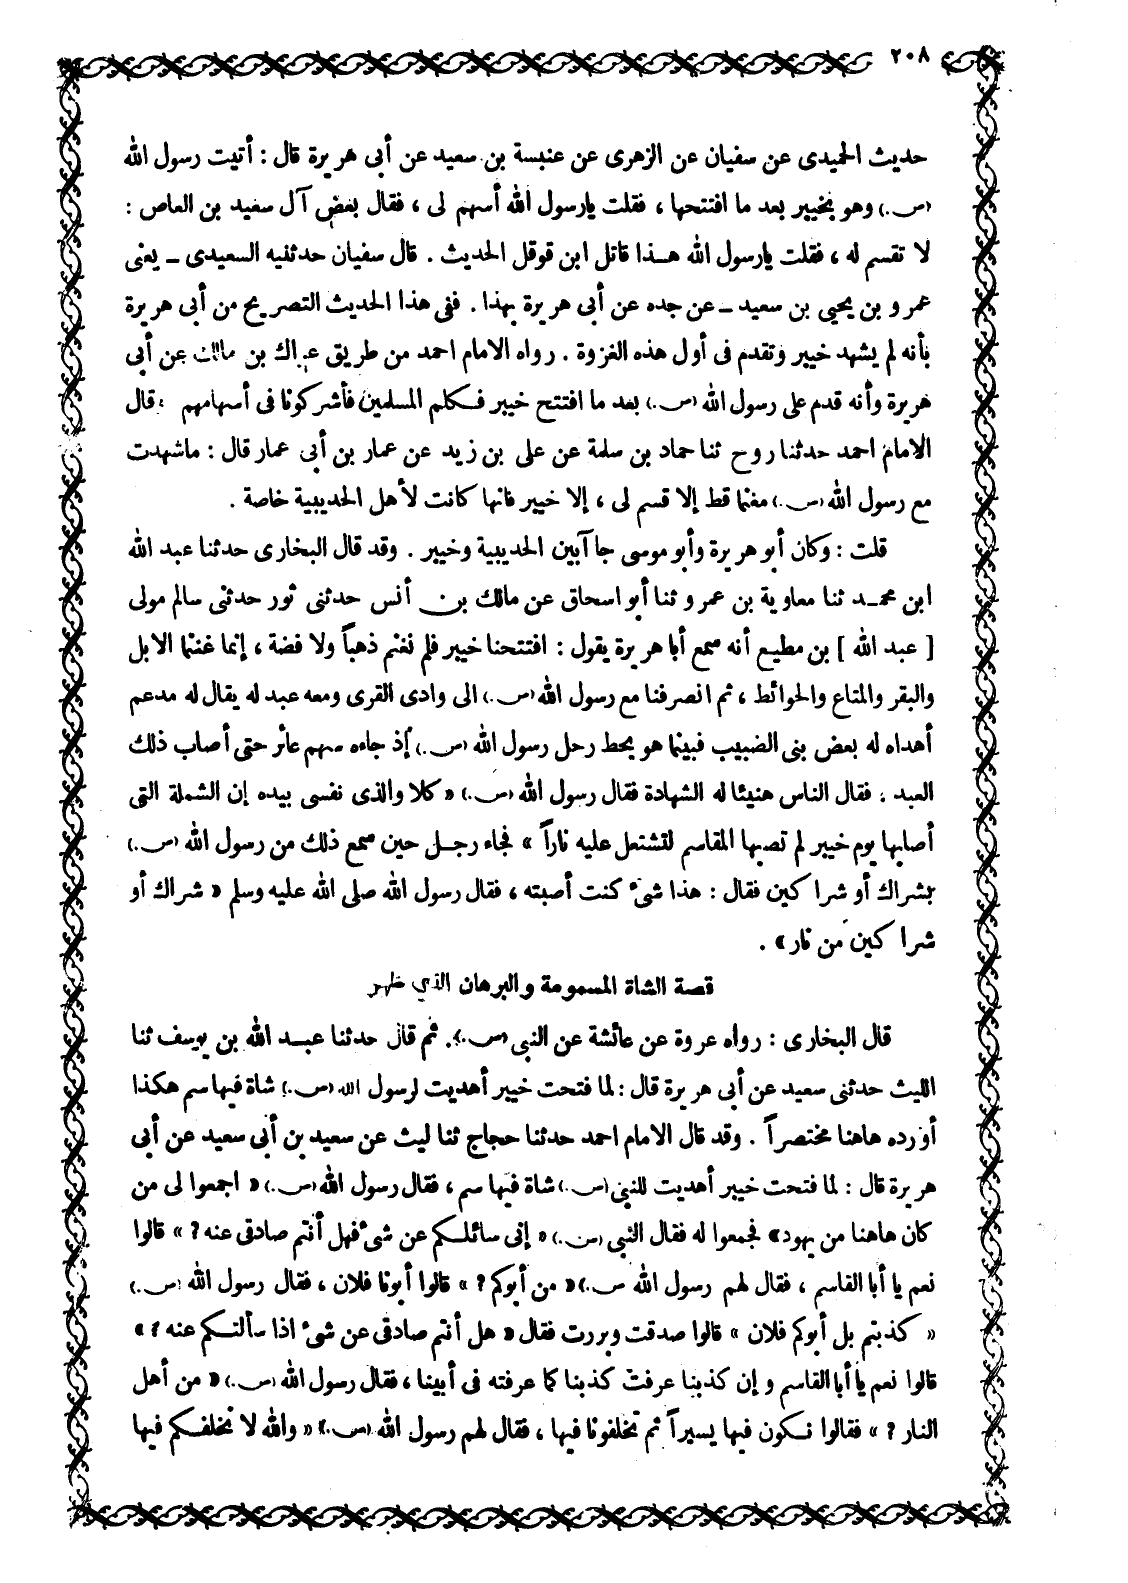 ٢٠٨
حديث الحميدى عن سفيان عن الزهرى عن عنبسة بن سعيد عن أبى هريرة قال : أتيت رسول الله
(ص.) وهو بخيبر بعد ما افتتحها ، فقلت يارسول الله أسهم لى ، فقال بعض آل سعيد بن العاص :
لا تقسم له ، فقلت يارسول الله هذا قاتل ابن قوقل الحديث . قال سفيان حدثنيه السعيدى ـ يعنى
عمرو بن يحيى بن سعيد ـ عن جده عن أبى هريرة بهذا . ففى هذا الحديث التصريح من أبى هريرة
بأنه لم يشهد خيبر وتقدم فى أول هذه الغزوة . رواه الامام احمد من طريق عراك بن مالك عن أبى
هريرة وأنه قدم على رسول الله (ص.) بعد ما افتتح خيبر فكلم المسلمين فأشركونا فى أسهامهم ، قال
الامام احمد حدثنا روح ثنا حماد بن سلمة عن على بن زيد عن عمار بن أبى عمار قال : ماشهدت
مع رسول الله (ص.) مغنما قط إلا قسم لى ، إلا خيبر فانها كانت لأهل الحديبية خاصة .
قلت : وكان أبو هريرة وأبو موسى جاآ بين الحديبية وخيبر . وقد قال البخارى حدثنا عبد الله
ابن محمد ثنا معاوية بن عمرو ثنا أبو اسحاق عن مالك بن أنس حدثنى ثور حدثنى سالم مولى
[ عبد الله ] بن مطيع أنه سمع أبا هريرة يقول : افتتحنا خيبر فلم نغنم ذهباً ولا فضة ، إنما غنمنا الابل
والبقر والمتاع والحوائط ، ثم انصرفنا مع رسول الله (ص.) الى وادى القرى ومعه عبد له يقال له مدعم
أهداه له بعض بنى الضبيب فبينما هو يحط رحل رسول الله (ص.) إذ جاءه سهم عائر حتى أصاب ذلك
العبد ، فقال الناس هنيئا له الشهادة فقال رسول الله (ص.) « كلا والذى نفسى بيده إن الشملة التى
أصابها يوم خيبر لم تصبها المقاسم لتشتعل عليه ناراً » فجاء رجل حين سمع ذلك من رسول الله (ص.)
بشراك أو شراكين فقال : هذا شىء كنت أصبته ، فقال رسول الله صلى الله عليه وسلم « شراك أو
شراكين من نار » .
قصة الشاة المسمومة والبرهان الذي ظهر
قال البخارى : رواه عروة عن عائشة عن النبى (ص.). ثم قال حدثنا عبد الله بن يوسف ثنا
الليث حدثنى سعيد عن أبى هريرة قال : لما فتحت خيبر أهديت لرسول الله (ص.) شاة فيها سم هكذا
أورده هاهنا مختصراً . وقد قال الامام احمد حدثنا حجاج ثنا ليث عن سعيد بن أبى سعيد عن أبى
هريرة قال : لما فتحت خيبر أهديت للنبى (ص.) شاة فيها سم ، فقال رسول الله (ص.) « اجمعوا لى من
كان هاهنا من يهود » فجمعوا له فقال النبى (ص.) « إنى سائلكم عن شىء فهل أنتم صادقى عنه ? » قالوا
نعم يا أبا القاسم ، فقال لهم رسول الله ص.) « من أبوكم ? » قالوا أبونا فلان ، فقال رسول الله (ص.)
« كذبتم بل أبوكم فلان » قالوا صدقت وبررت فقال « هل أنتم صادقى عن شىء اذا سألتكم عنه ? »
قالوا نعم يا أبا القاسم و إن كذبنا عرفت كذبنا كما عرفته فى أبينا ، فقال رسول الله (ص.) « من أهل
النار ? » فقالوا نكون فيها يسيراً ثم تخلفونا فيها ، فقال لهم رسول الله (ص.) « والله لا نخلفكم فيها